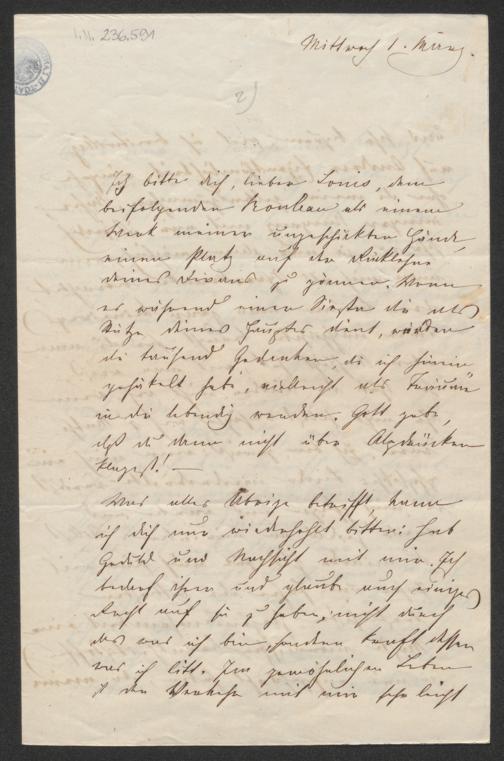 I.N. 236.591
Mittwoch 1. März.
2)
Ich bitte dich, lieber Louis, dem
beifolgenden Rouleau als einem
Werk meiner ungeschickten Hände,
einen Platz auf der Rücklehne
deines Divans zu gönnen. Wenn
es während einer Siesta dir als
Stütze deines Hauptes dient, würden
die tausend Gedanken, die ich hinein
gehäkelt habe, vielleicht als Träume
in dir lebendig werden. Gott gebe,
daß du dann nicht über Alpdrücken
klagest! —
Was alles Übrige betrifft, kann
ich dich nur wiederhohlt bitten: hab
Geduld und Nachsicht mit mir. Ich
bedarf ihrer und glaube auch einiges
Recht auf sie zu haben, nicht durch
das was ich bin, sondern kraft dessen
was ich litt. Im gewöhnlichen Leben
ist der Verkehr mit mir sehr leicht